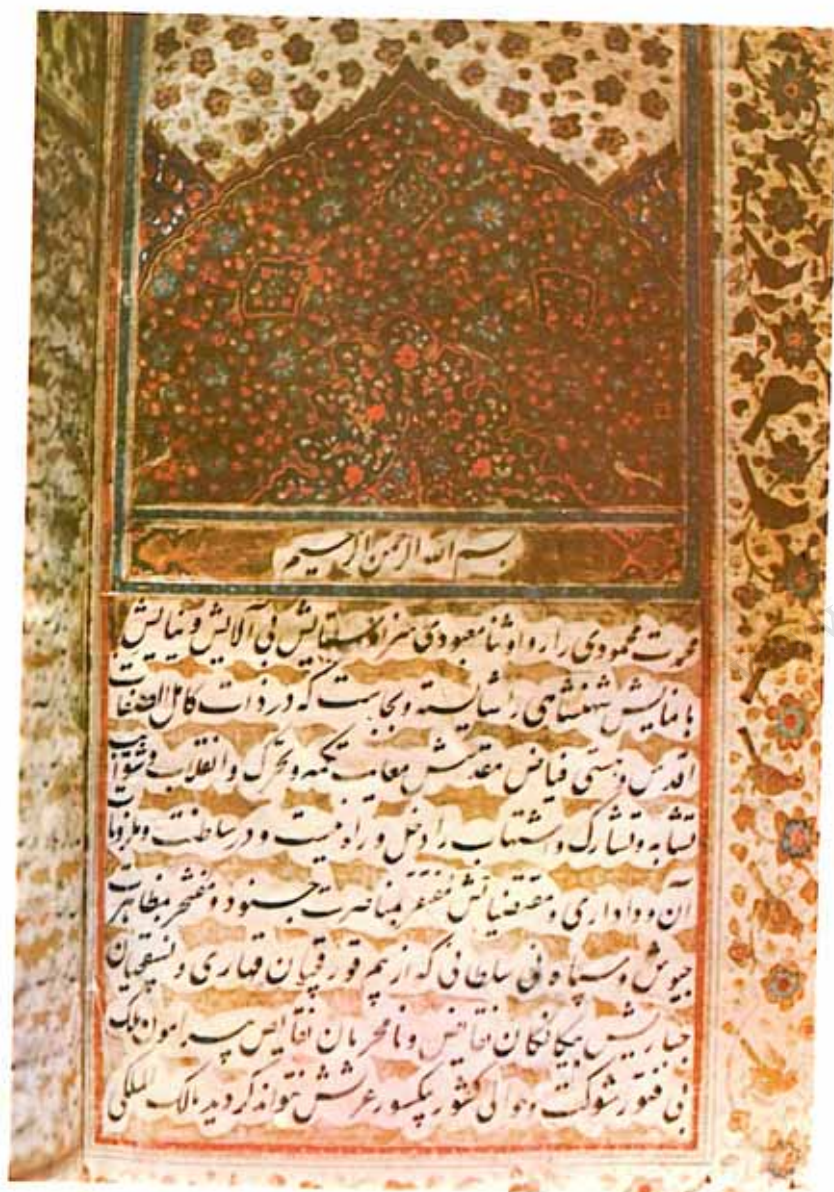 بسم الله الرحمن الرحیم
محمودی را روا و ثنا معبودی سزا و ستایش بی آلایش و نیایش
با نمایش شهنشاهی را شایسته و بجاست که در ذات کامل الصفات
اقدس و هستی فیاض مقدسش معایب تحرک و انقلاب و شوائب
تشابه و تشارک و اشتباه را دخل و راه نیست و در سلطنت و ملزومات
آن و داداری و مقتضیاتش مفتقر بمناصرت جنود و مفتخر مظاهرت
جیوش و سپاه نی سلطانی که از بیم قورقچیان قهاری و نسقچیان
جباریش بیگانگان نقایض و نامحرمان نقایص پیرامون ملک
بی فتور شوکت و حوالی کشور عرشش نتواند گردید مالک الملکی